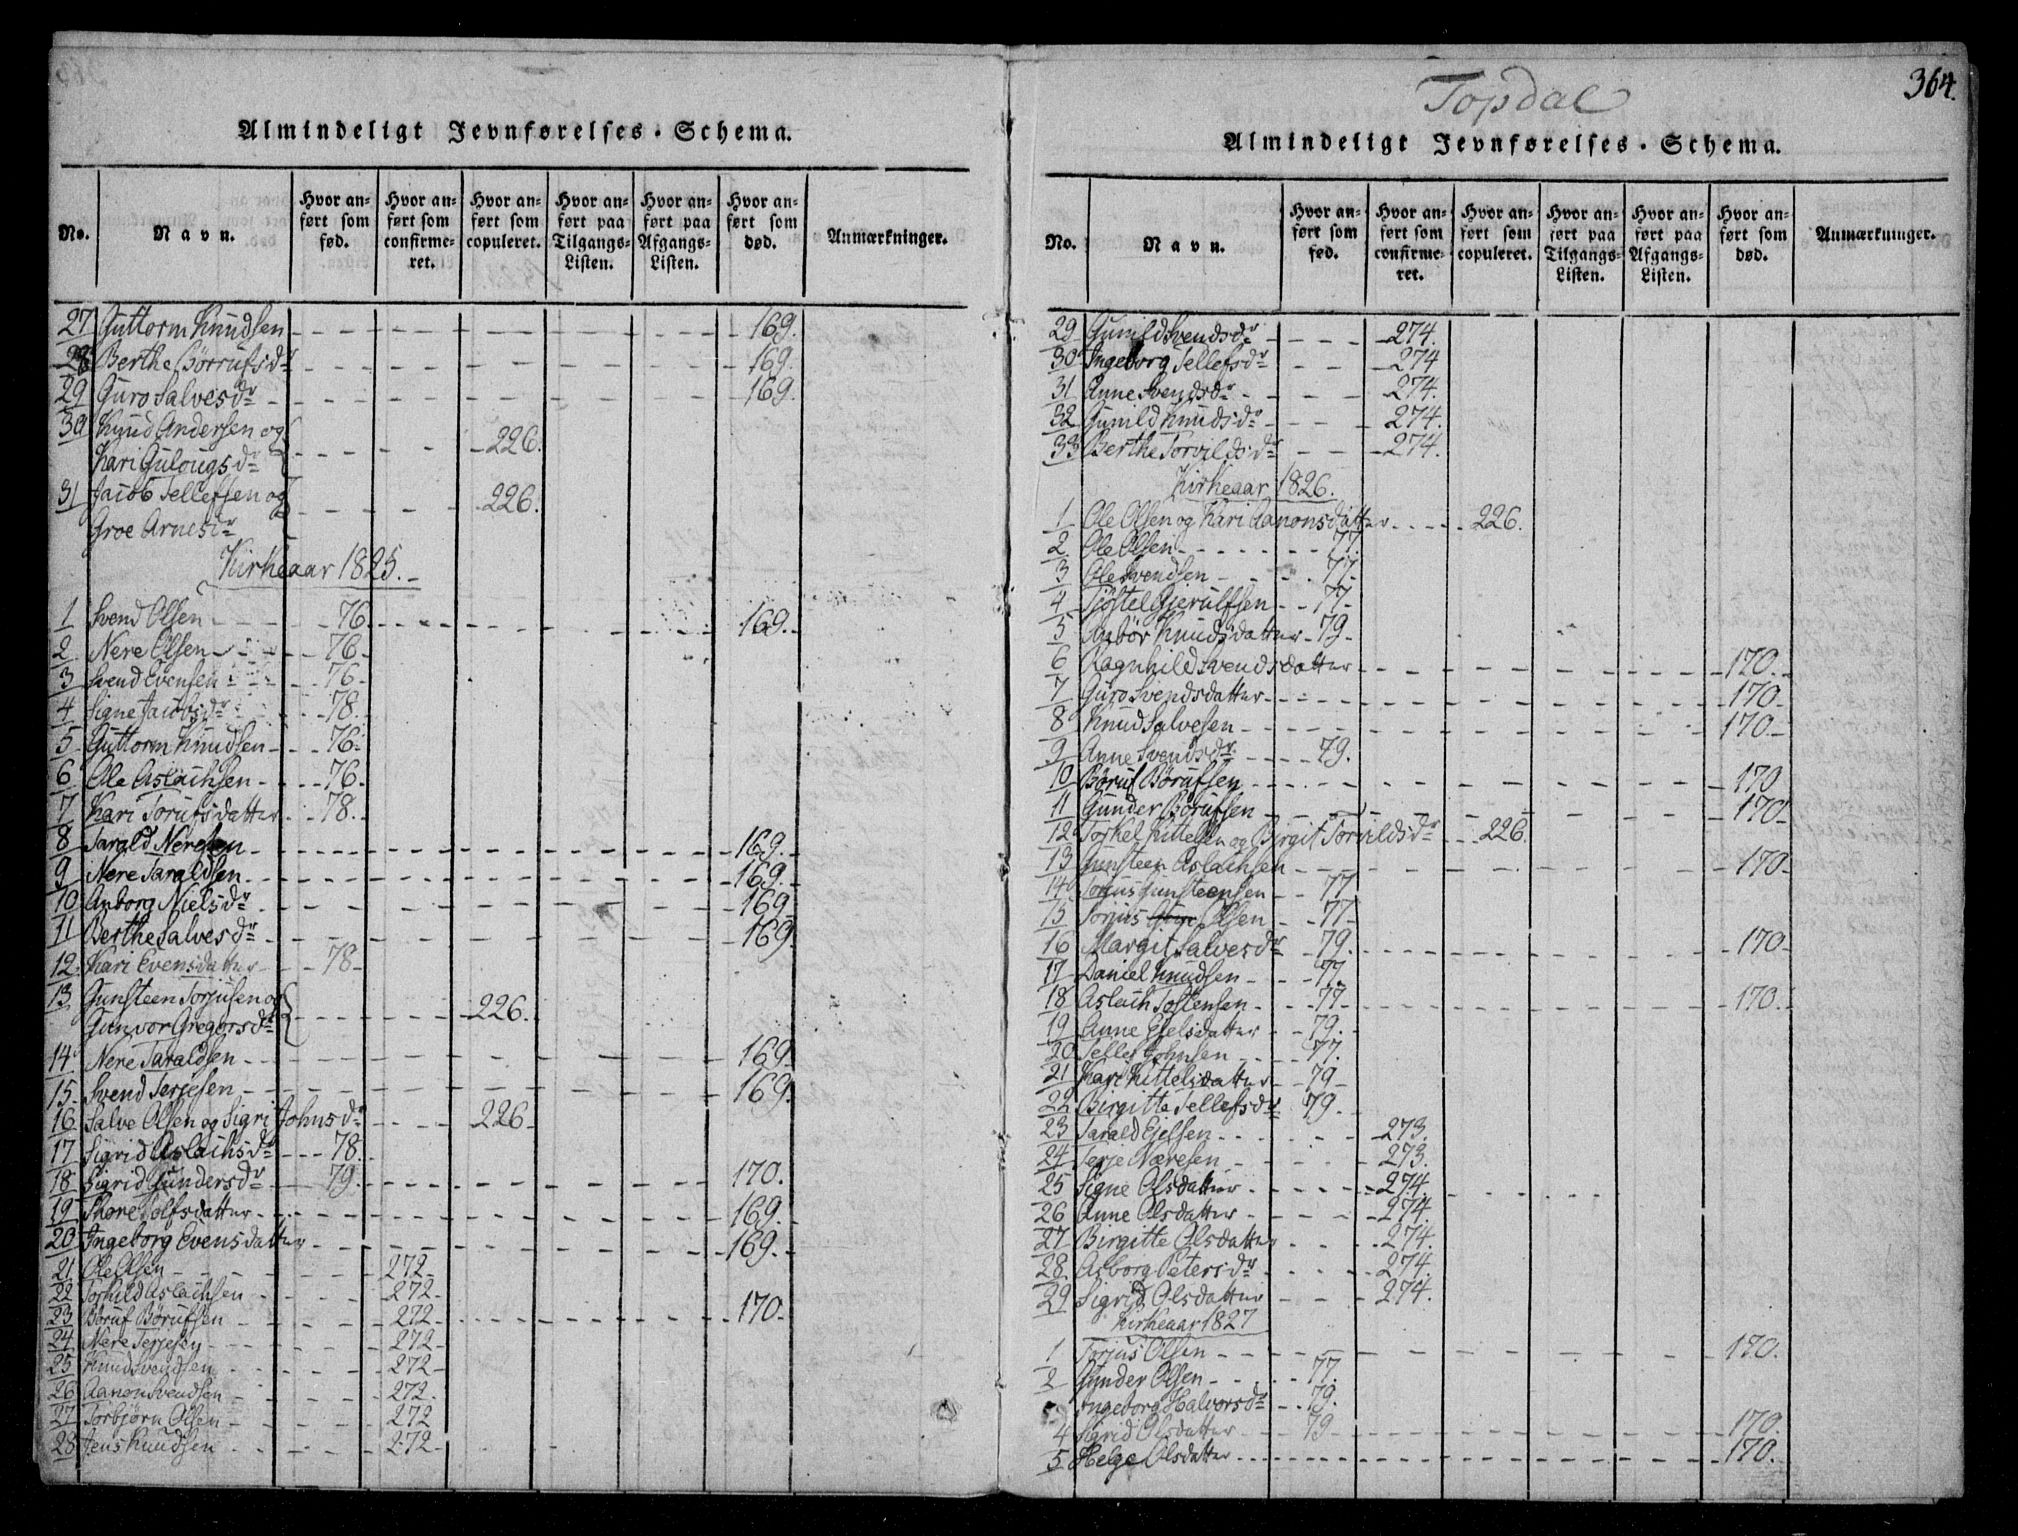 Almindeligt Jevnførelses-Schema.
No. Navn. Hvor anført som fød. Hvor anført som confirmeret. Hvor anført som copuleret. Hvor anført paa Tilgangs-Listen. Hvor anført paa Afgangs-Listen. Hvor anført som død. Anmærkninger.
27 Guttorm Knudsen 169.
28 Berthe Börrufsdr 169.
29 Guro Salvesdr 169.
30 Knud Andersen og
Kari Gulougsdr 226.
31 Jacob Tellefsen og 226.
Groe Arnesdr
Kirkeaar 1825.
1 Svend Olsen 76. 169.
2 Nere Olsen 76.
3 Svend Evensen 76.
4 Signe Jacobsdr 78.
5 Guttorm Knudsen 76.
6 Ole Aslachsen 76.
7 Kari Torufsdatter 78.
8 Tarald Neresen 169.
9 Nere Taraldsen 169.
10 Anborg Nielsdr 169.
11 Berthe Salvesdr 169
12 Kari Evensdatter 78
13 Gunsteen Torjusen og 226.
Gunvor Gregorsdr
14 Nere Taraldsen 169.
15 Svend Terjesen 169.
16 Salve Olsen og Sigri Johnsdr 226
17 Sigrid Aslachsdr 78.
18 Sigrid Gundersdr 79. 170.
19 Thore Rolfsdatter 169.
20 Ingeborg Evensdatter 169.
21 Ole Olsen 272
22 Torkild Aslachsen 272
23 Böruf Börufsen 272 170.
24 Nere Terjesen 272
25 Knud Svendsen 272
26 Aanon Svendsen 272
27 Torbjörn Olsen 272
28 Jens Knudsen 272
Topdal
364.
Almindeligt Jevnførelses-Schema.
No. Navn. Hvor anført som fød. Hvor anført som confirmeret. Hvor anført som copuleret. Hvor anført paa Tilgangs-Listen. Hvor anført paa Afgangs-Listen. Hvor anført som død. Anmærkninger.
29 Gunild Svendsdr 274.
30 Ingeborg Tellefsdr 274
31 Anne Svendsdr 274.
32 Gunild Knudsdr 274.
33 Berthe Torvildsdr 274.
Kirkeaar 1826.
1 Ole Olsen og Kari Aanonsdatter 226.
2 Ole Olsen 77.
3 Ole Svendsen 77.
4 Tjöstel Gjerulfsen 77
5 Anbör Knudsdatter 79
6 Ragnhild Svendsdatter 170.
7 Guro Svendsdatter 170
8 Knud Salvesen 170
9 Anne Svendsdr 79.
10 Böruf Börufsen 170
11 Gunder Börufsen 170
12 Torkel Kittelsen og Birgit Torvildsdr 226
13 Gunsteen Aslachsen 170
14 Torjus Gunsteensen 77
15 Torjus Olsen 77
16 Margit Salvesdr 79. 170
17 Daniel Knudsen 77.
18 Aslach Tostensen 77 170.
19 Anne Eielsdatter 79.
20 Tellef Johnsen 77.
21 Kari Kittelsdatter 79
22 Birgitte Tellefsdr 79.
23 Tarald Eielsen 273.
24 Terje Næresen 273.
25 Signe Olsdatter 274
26 Anne Olsdatter 274
27 Birgitte Olsdatter 274.
28 Asborg Petersdr 274.
29 Sigrid Olsdatter 274.
Kirkeaar 1827
1 Torjus Olsen 170.
2 Gunder Olsen 77.
Ingeborg Halvorsdr 79.
4 Sigrid Olsdatter 79 170.
5 Helge Olsdatter 170.